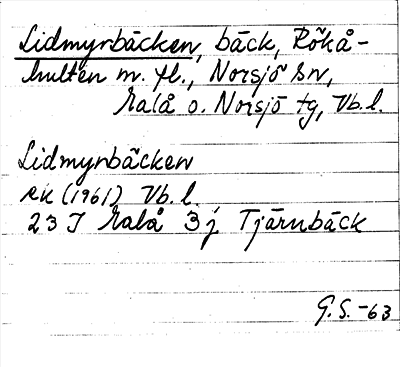 Lidmyrbäcken, bäck, Rökå-
hulten m. fl., Norsjö sn,
Malå o. Norsjö tg, Vb. l.
Lidmyrbäcken
ek (1961) Vb. l.
23 J Malå 3j Tjärnbäck
G. S. -63